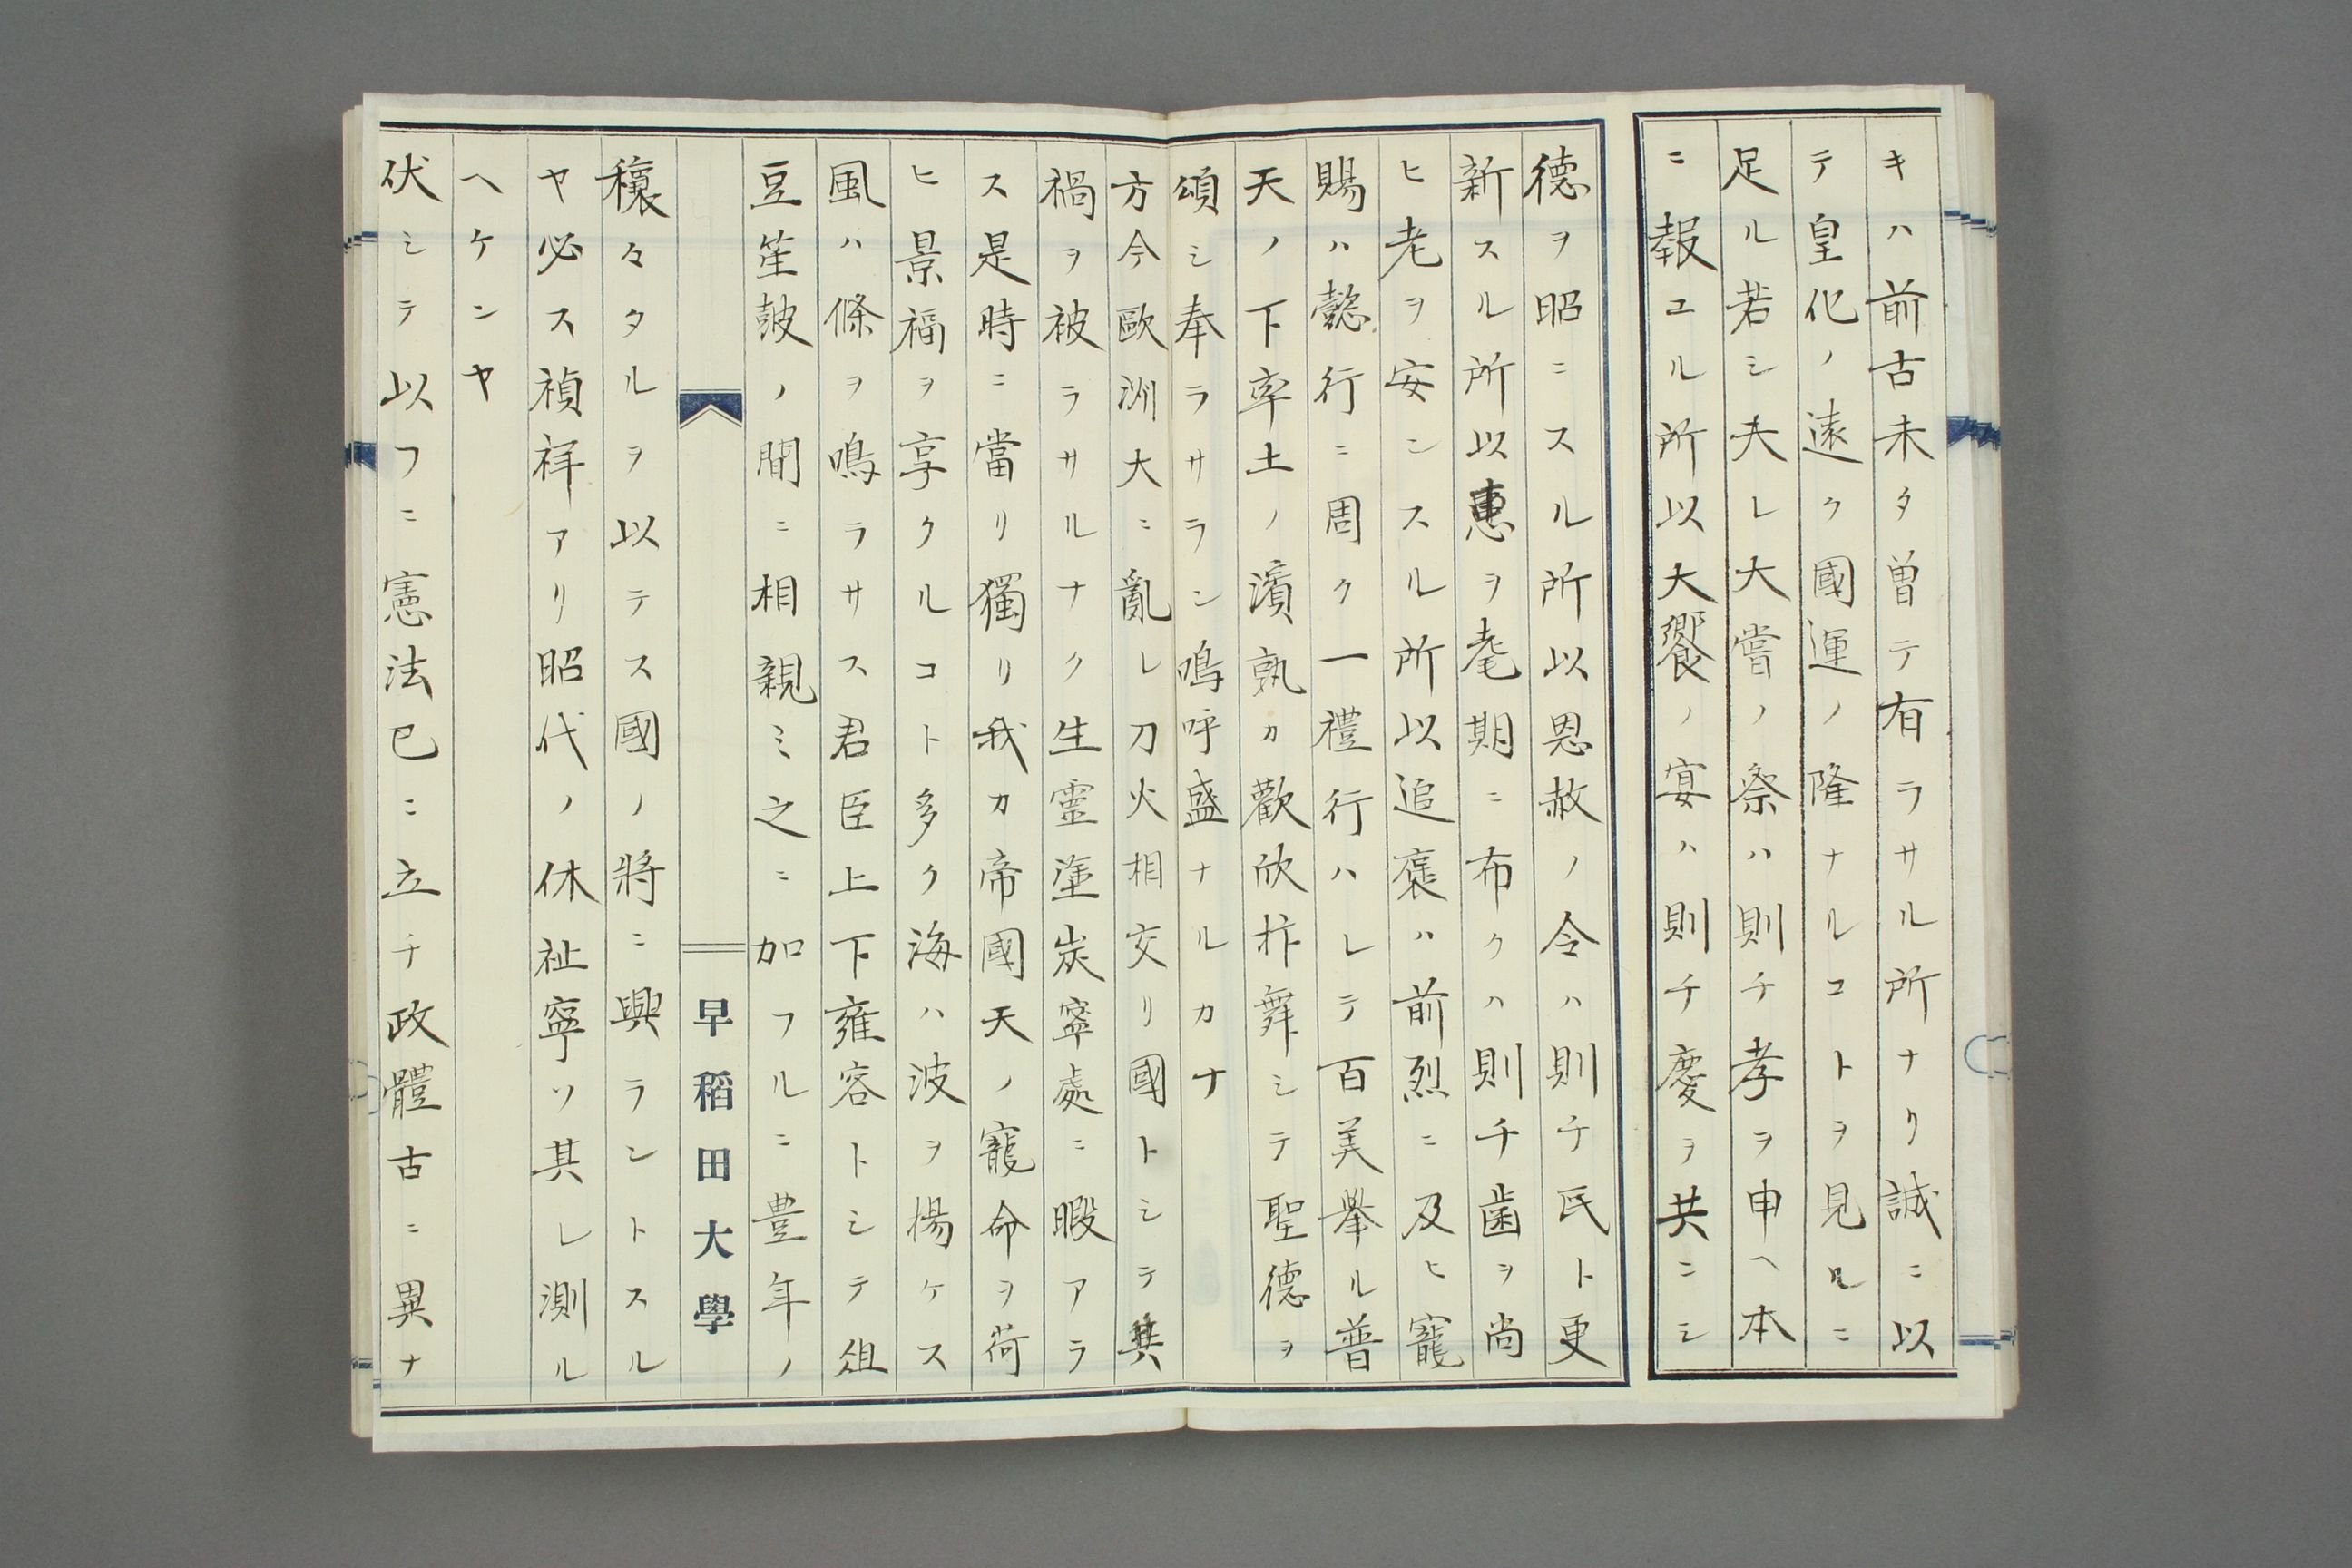 キハ前古未タ曽テ有ラサル所ナリ誠ニ以
テ皇化ノ遠ク國運ノ隆ナルコトヲ見ルニ
足ル若シ夫レ大嘗ノ祭ハ則チ孝ヲ申ヘ本
ニ報ユル所以大饗ノ宴ハ則チ慶ヲ共ニシ
德ヲ昭ニスル所以恩赦ノ令ハ則チ民ト更
新スル所以惠ヲ耄期ニ布クハ則チ歯ヲ尚
ヒ老ヲ安ンスル所以追褒ハ前烈ニ及ヒ寵
賜ハ懿行ニ周ク一禮行ハレテ百美擧ル普
天ノ下率土ノ濱孰カ歡欣抃舞シテ聖德ヲ
頌シ奉ラサラン嗚呼盛ナルカナ
方今歐洲大ニ亂レ刀火相交リ國トシテ其
禍ヲ被ラサルナク生靈塗炭寧處ニ暇アラ
ス是時ニ當リ獨リ我カ帝國天ノ寵命ヲ荷
ヒ景福ヲ享クルコト多ク海ハ波ヲ揚ケス
風ハ條ヲ鳴ラサス君臣上下雍容トシテ俎
豆笙皷ノ間ニ相親ミ之ニ加フルニ豊年ノ
早稲田大學
穰々タルヲ以テス國ノ將ニ興ラントスル
ヤ必ス禎祥アリ昭代ノ休祉寧ソ其レ測ル
ヘケンヤ
伏シテ以フニ憲法已ニ立チ政體古ニ異ナ